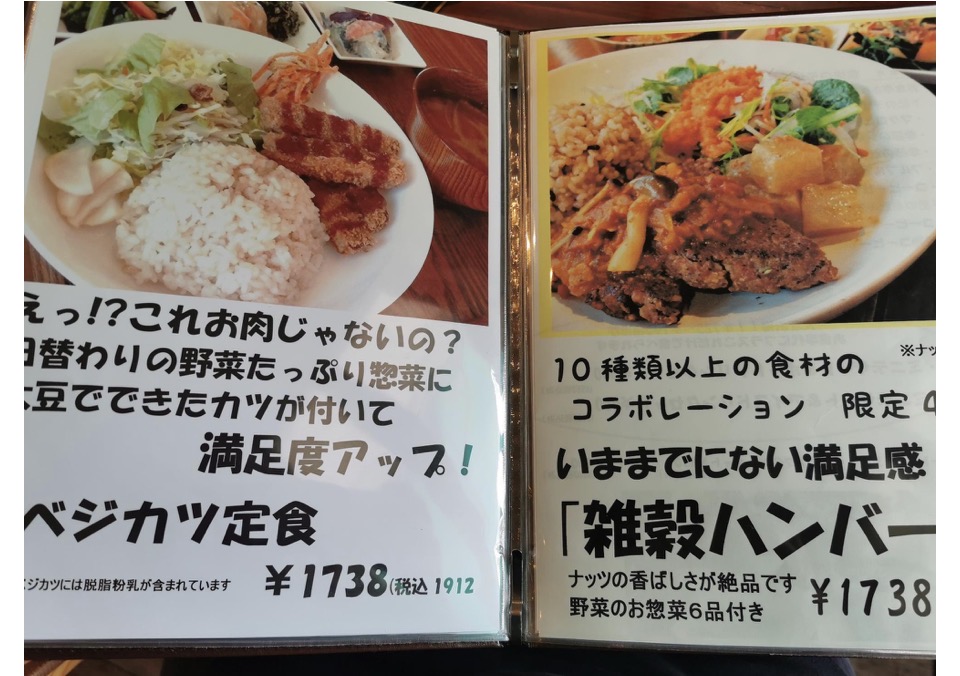 えっ!?これお肉じゃないの?
日替わりの野菜たっぷり惣菜に
大豆でできたカツが付いて
満足度アップ!
ベジカツ定食
ベジカツには脱脂粉乳が含まれています
¥1738(税込 1912
※ナッ
10種類以上の食材の
コラボレーション 限定4
いままでにない満足感
「雑穀ハンバー
ナッツの香ばしさが絶品です
野菜のお惣菜6品付き
¥1738